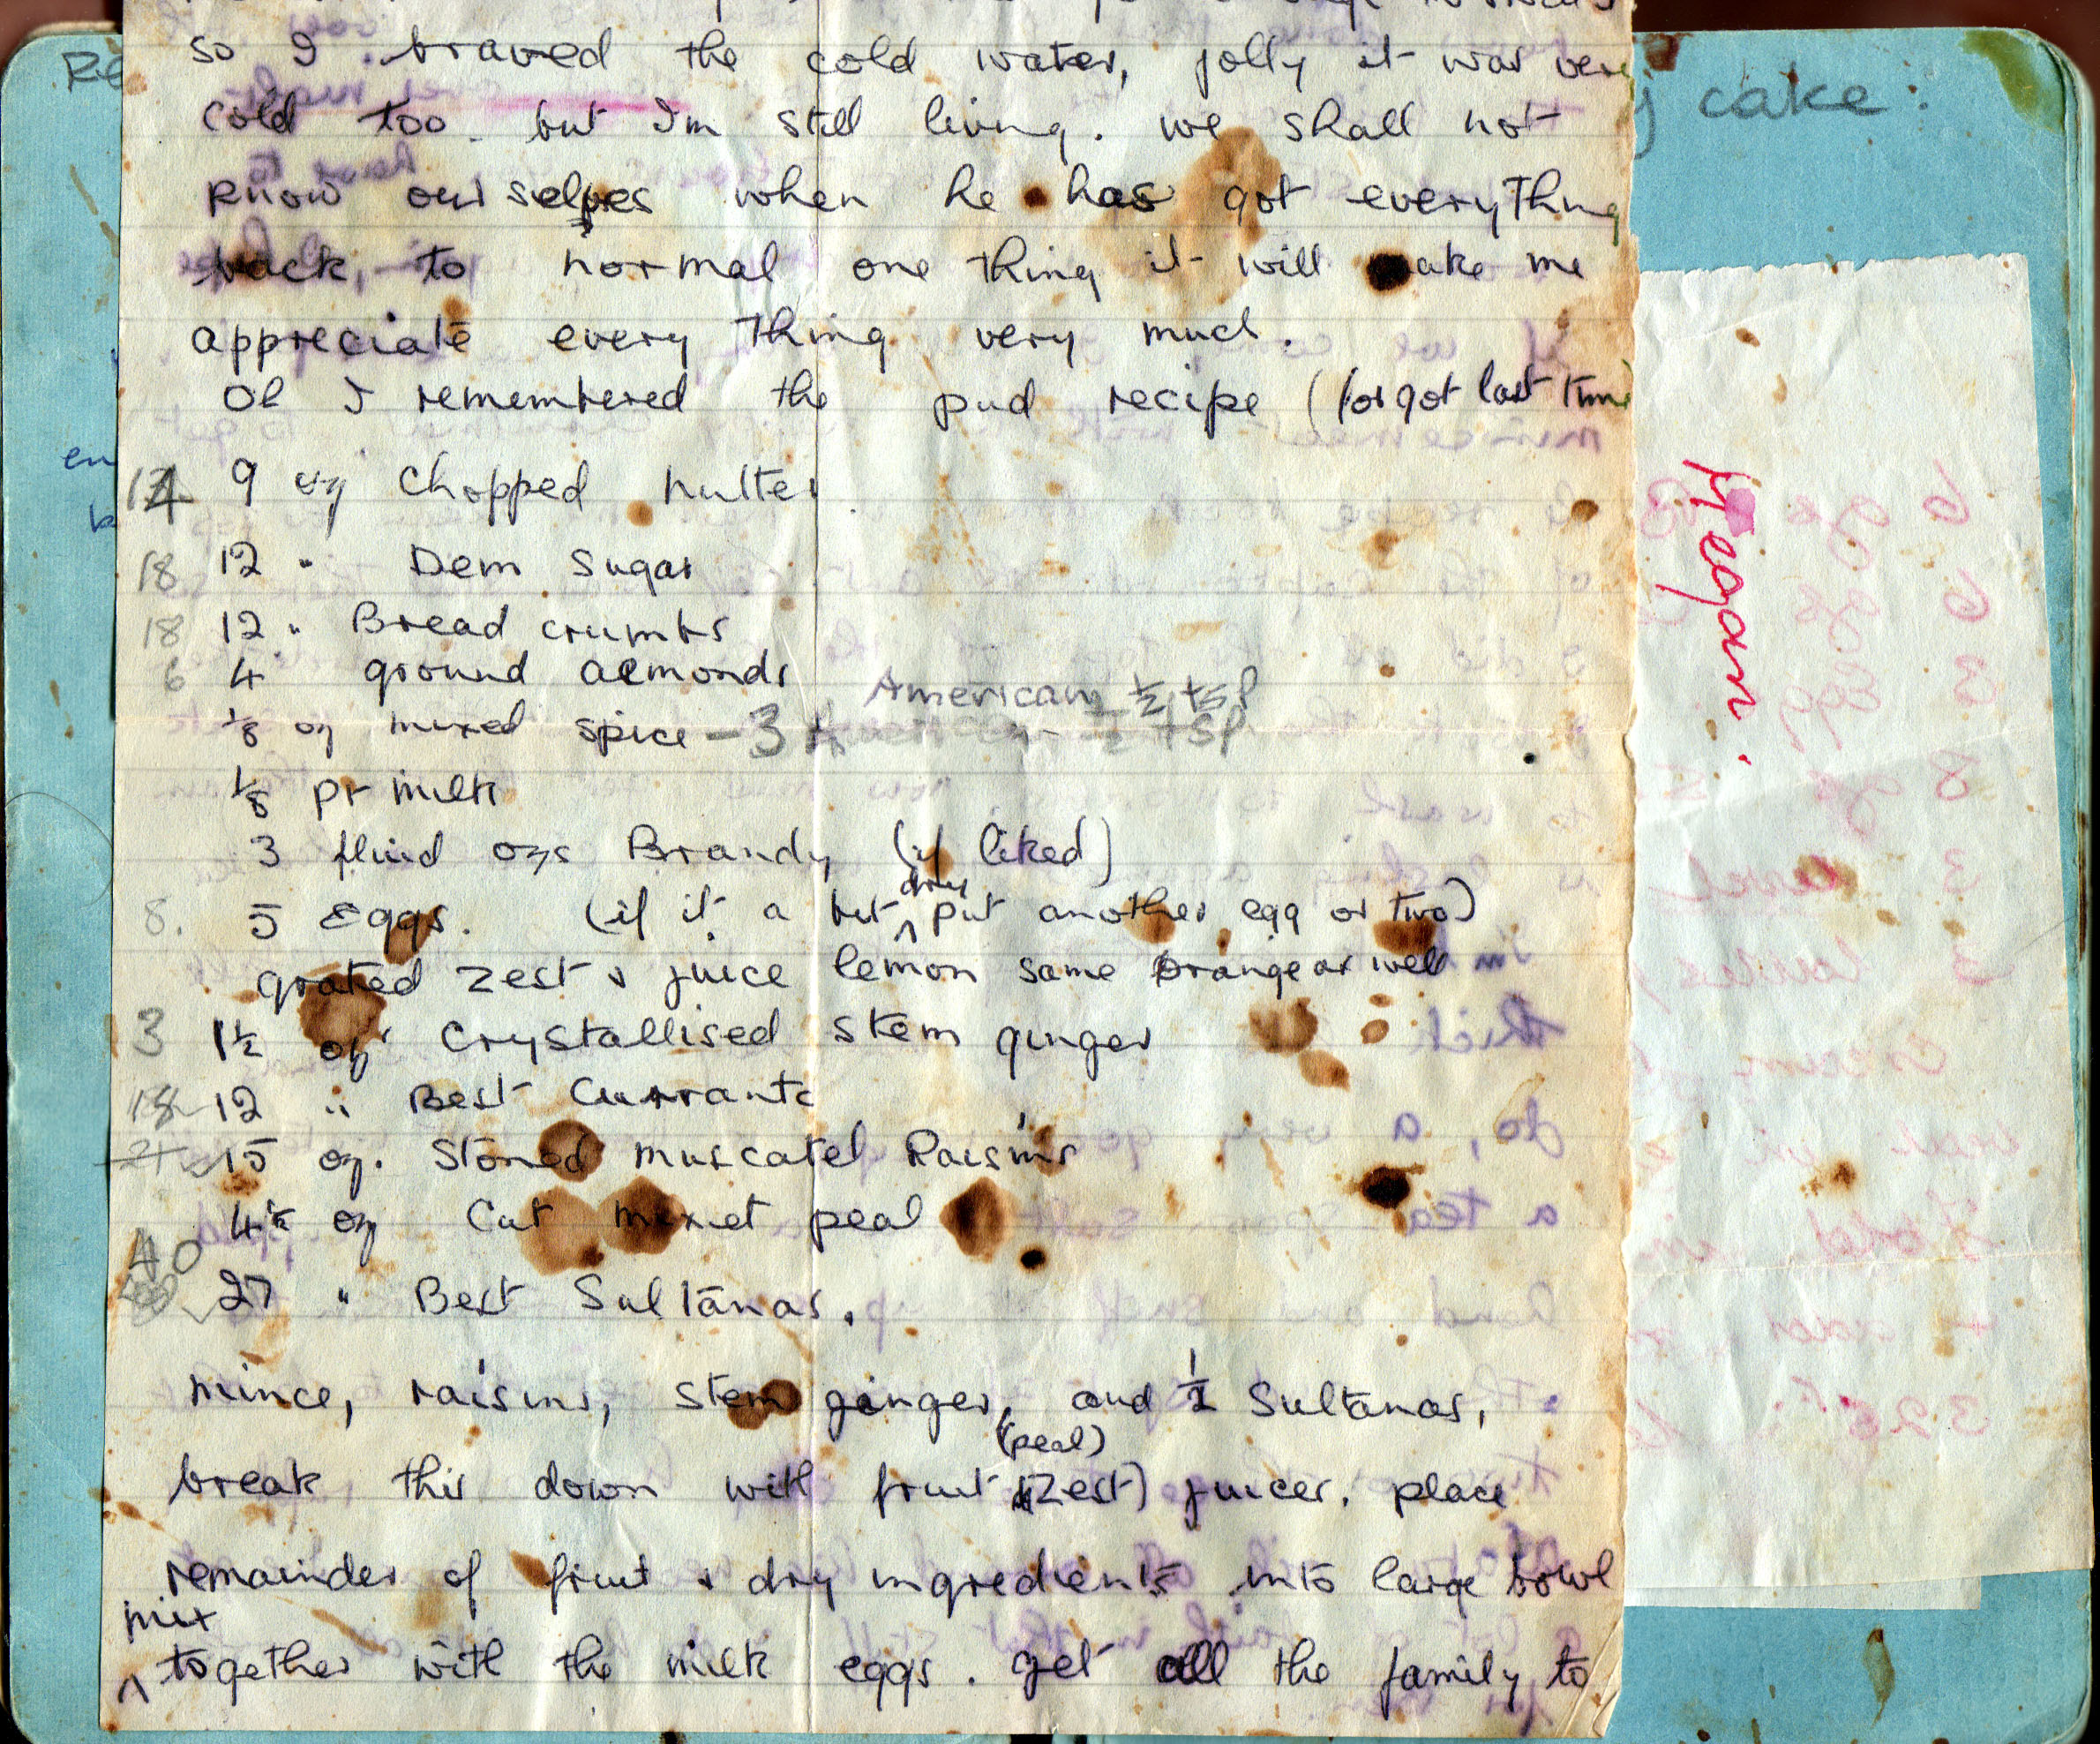 so I braved the cold water, jolly it was very
cold too. but I'm still living. we shall not
know ourselves when he has got everything
back, to normal one thing it will make me
appreciate every thing very much.
Oh I remembered the pud recipe (forgot last time
9 oz chopped nutter
18 12 " Dem Sugar
18 12 " Bread crumbs
6 4 " ground almonds
American ½ tsp
⅛ oz mixed spice - 3
⅛ pt milk
3 fluid ozs Brandy (if liked)
8. 5 Eggs. (if it a bit dry put another egg or two)
grated zest & juice lemon same orange as well
3 1½ oz Crystallised stem ginger
18 12 " Best Currants
15 oz. Stoned muscatel Raisins
4½ oz Cut mixet peal
40
27 " Best Sultanas.
mince, raisins, stem ginger, and ½ Sultanas,
break this down with fruit (peal) (Zest) juices. place
remainder of fruit & dry ingredients into large bowl
mix together with the milk eggs. get all the family to
cake:
Megan.